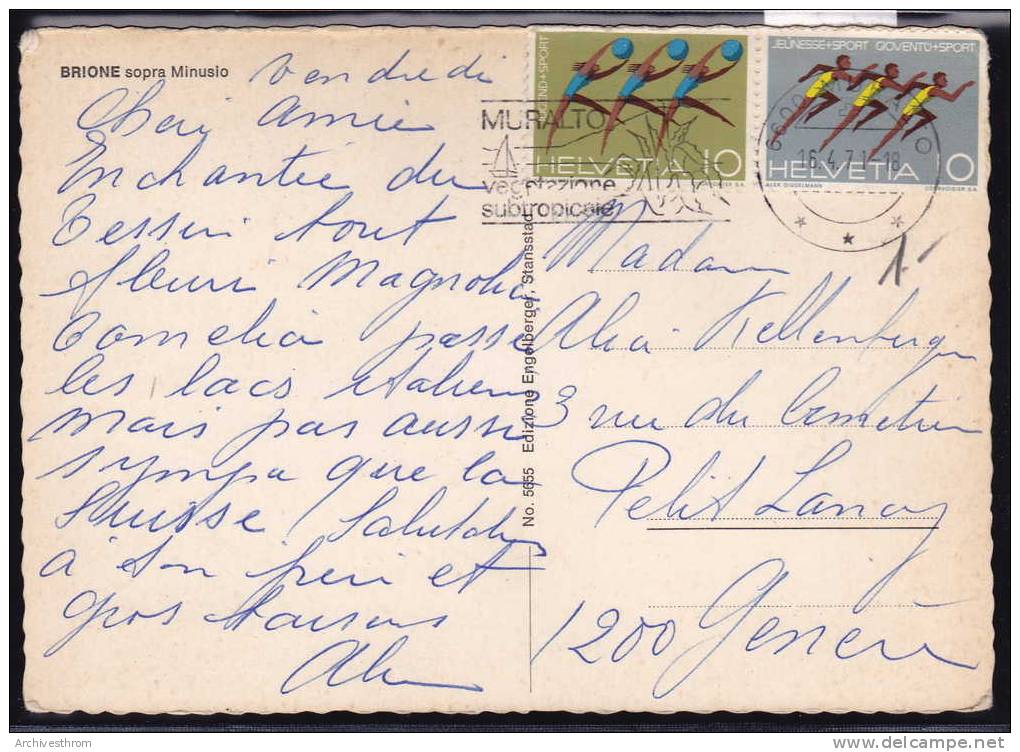 BRIONE sopra Minusio
vendredi
Amie
Enchantée du
Tessin tout
fleuri Magnolia
Camelia passé
les lacs italiens
mais pas aussi
sympa que la
Suisse
à ton père et
gros baisers
JUGEND+SPORT
HELVETIA 10
JEUNESSE+SPORT GIOVENTÙ+SPORT
HELVETIA 10
ALEX DIGGELMANN
COURVOISIER S.A.
MURALTO
vegetazione
subtropicale
16.4.71-18
No. 5655 Edizione Engelberger, Stansstad
Madame
Kellenberger
3 rue du Cimetière
Petit Lancy
1200 Genève
Archivesthrom
www.delcampe.net